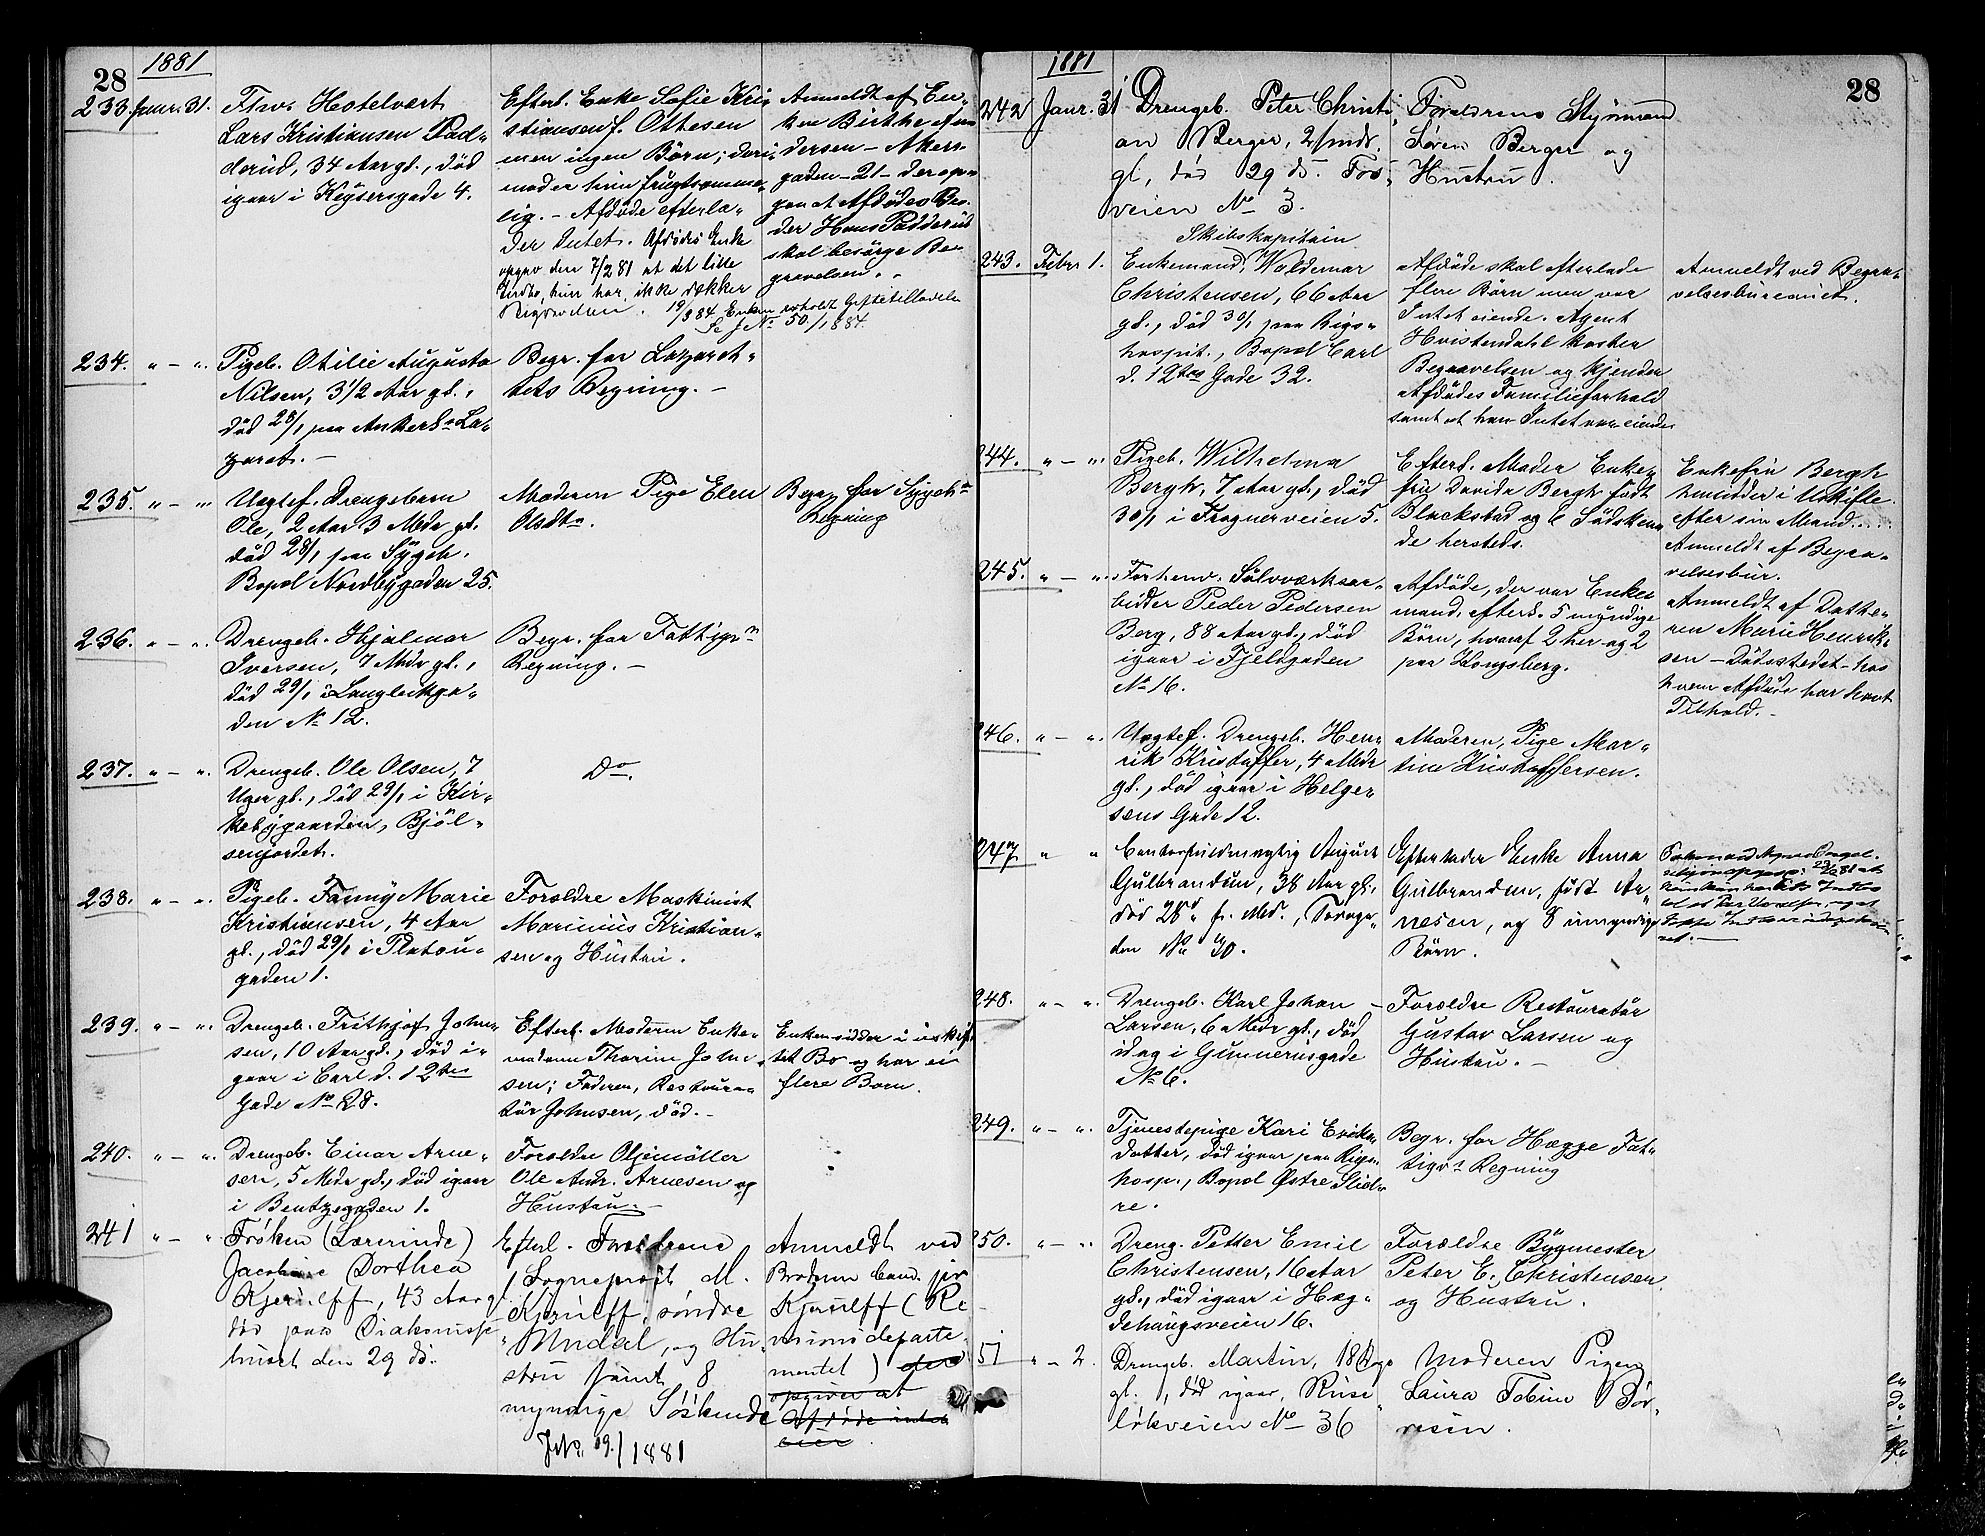 28
1881
233. Januar 31.
Fhv. Hotelvert
Lars Kristiansen Pad-
derud, 34 Aar gl., död
igaar i Keysersgade 4.
Efterl. Enke Sofie Kri
stiansen f. Ottesen
men ingen Börn; deri-
mod er hun frugtsomme-
lig. - Afdöde efterla-
der Intet. Afdödes Enke
opgav den 7/2 81 at det lille
Indbo, hun har, ikke dækker
Begravelsen. 19/3 84 Enken erholdt Giftetilladelse
Se J No 50/1884.
Anmeldt af En-
ken Birthe An-
dersen - Akers-
gaden - 21 - der op-
gav at Afdödes Bro-
der Hans Padderud
skal besörge Be-
gravelsen. -
234. " - ".
Pigeb. Otilie Augusta
Nilsen, 3 1/2 Aar gl.,
död 28/1 paa Ankerlö La-
zaret. -
Begr. for Lazareth-
tets Regning. -
235. " - "
Uegtef. Drengebarn
Ole, 2 Aar 3 Mdr gl.
död 28/1 paa Sygeh.
Bopæl Nordbygaden 25.
Moderen Pige Elen
Olsdtr.
Begr. for Sygehs
Regning
236. " - ".
Drengeb. Hjalmar
Iversen, 7 Mdr gl.,
död 29/1 i Langleikga-
den No 12.
Begr. for Fattigvn
Regning. -
237. " - ".
Drengeb. Ole Olsen, 7
Uger gl., död 29/1 i Kir-
kebygaarden, Bjöl-
senjordet.
Do
238. " - ".
Pigeb. Fanny Marie
Kristiansen, 4 Aar
gl., död 29/1 i Platou-
gaden 1.
Foreldre Maskinist
Marinius Kristian-
sen og Hustru.
239. " - ".
Drengeb. Frithjof John-
sen, 10 Aar gl., död i-
gaar i Carl d. 12tes
Gade No 28.
Efterl. Moderen Enke-
madame Thorine John-
sen; Faderen, Restaura-
tör Johnsen, död. -
Enken sidder i uskif-
tet Bo og har ei
flere Börn.
240. " - ".
Drengeb. Einar Arne-
sen, 5 Mdr gl., död igaar
i Bentzegaden 1.
Foreldre Oljemöller
Ole Andr. Arnesen og
Hustru. -
241 " - ".
Frøken (Lærerinde)
Jacobine Dorthea
Kjerulff, 43 Aar gl
død paa Diakonisse
huset den 29 ds.
Efterl. Forældrene
Sogneprest M.
Kjerulff, søndre
Undal, og Hu-
stru samt 8
myndige Söskende
J No 19/1881
Anmeldt ved
Broderen Cand. jur
Kjerulff (Re
visionsdeparte-
mentet) der
opgiver at
Afdøde intet
eier.
1881
28
242 Janr. 31
Drengeb. Peter Christi-
an Berger, 2 1/2 mdr.
gl., død 29 ds. Fos-
veien No 3.
Forældrene Styrmand
Søren Berger og
Hustru.
243. Febr 1.
Skibskapitain
Enkemand, Woldemar
Christensen, 66 Aar
gl., död 30/1 paa Rigs-
hospit., Bopæl Carl
d. 12tes Gade 32.
Afdöde skal efterlade
flere Börn men var
Intet eiende. Agent
Hvistendahl koster
Begravelsen og kjender
Afdödes Familieforhold
samt at han Intet var eiende
Anmeldt ved Begra-
velsesbureauet.
244. " - ".
Pigeb. Wilhelma
Bergh, 7 Aar gl., död
30/1 i Frognerveien 5.
Efterl. Moder Enke-
fru Davida Bergh född
Blackstad og 6 Södsken-
de hersteds.
Enkefru Bergh
hensidder i Uskifte
efter sin Mand.
Anmeldt af Begra-
velsesbur.
245. " - ".
Forhenv. Sölvværksar-
beider Peder Pedersen
Berg, 88 Aar gl., död
igaar i Fjeldgaden
No 16.
Afdöde, der var Enke-
mand, efterl. 5 myndige
Börn, hvoraf 2 her og 2
paa Kongsberg.
Anmeldt af Dathe-
ren Marie Henrik-
sen - Dödsstedet - hos
hvem Afdöde har havt
Tilhold. -
246. " - ".
Uegtef. Drengeb. Hen-
rik Kristoffer, 4 Mdr
gl., död igaar i Helge-
sens Gade 12.
Moderen, Pige Mar-
tine Kristoffersen.
247 " "
Contorfuldmægtig August
Gulbrandsen, 38 Aar gl.
död 28d f. Md., Torvga-
den No 30.
Efterlader Enke Anna
Gulbrandsen, født Ar-
nesen, og 8 umyndige
Börn.
248. " - ".
Drengeb. Karl Johan -
Larsen, 6 Mdr gl., död
idag i Gunnerusgade
No 6.
Forældre Restauratör
Gustav Larsen og
Hustru. -
249. " - ".
Tjenestepige Kari Eriks-
datter, död igaar paa Rigs-
hosp., Bopæl Østre Slid-
re.
Begr. for Hegge Fat-
tigvs Regning
250. " - ".
Dreng. Petter Emil
Christensen, 16 Aar
gl., död igaar i Heg-
dehaugsveien 16.
Forældre Bygmester
Peter E. Christensen
og Hustru.
51 " - 2.
Drengeb. Martin, 18 Dage
gl., död igaar, Ruse
løkveien No 36
Moderen Pigen
Laura Tobine Tor-
resen.